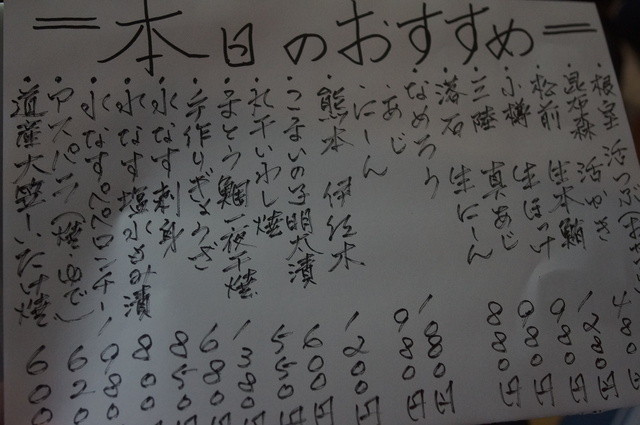 =本日のおすすめ=
・根室 活つぶ(お 480
・昆布森 活がき 1280円
・松前 生本鮪 980円
・小樽 生ほっけ 980円
・三陸 真あじ 880円
・落石 生にしん
・なめろう
・あじ 1880円
・にしん 980円
・熊本 伊佐木 1200円
・こまいの子明太漬 600円
・丸干いわし焼 550円
・まとう鯛一夜干焼 1380円
・手作りぎょうざ 680円
・水なす刺身 850
・水なす塩水もみ漬 800
・水なすペペロンチー 980
・アスパラ(焼・ゆで) 620
・道産大きいたけ焼 600